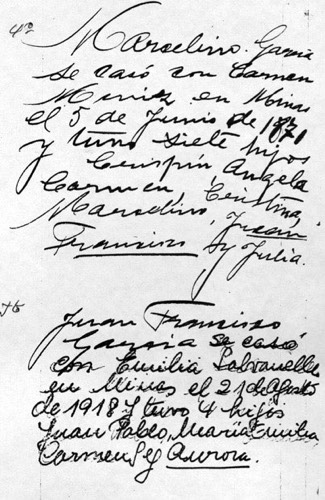 4º
Marcelino Garcia
se casó con Carmen
Muniz en Minas
el 5 de Junio de 1871
y tuvo siete hijos
Crispin, Angela
Carmen, Cristina,
Marcelino, Juan
Francisco y Julia.
Juan Francisco
Garcia se casó
con Emilia
en Minas el 21 de Agosto
de 1918 y tuvo 4 hijos
Juan Pablo, María Emilia
Carmen S y Aurora.